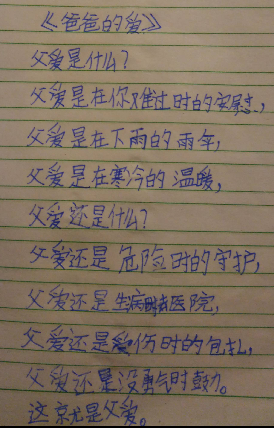 《爸爸的爱》
父爱是什么?
父爱是在你难过时的安慰,
父爱是在下雨的雨伞,
父爱是在寒冷的温暖,
父爱还是什么?
父爱还是危险时的守护,
父爱还是生病时医院,
父爱还是受伤时的包扎,
父爱还是没勇气时鼓励。
这就是父爱。